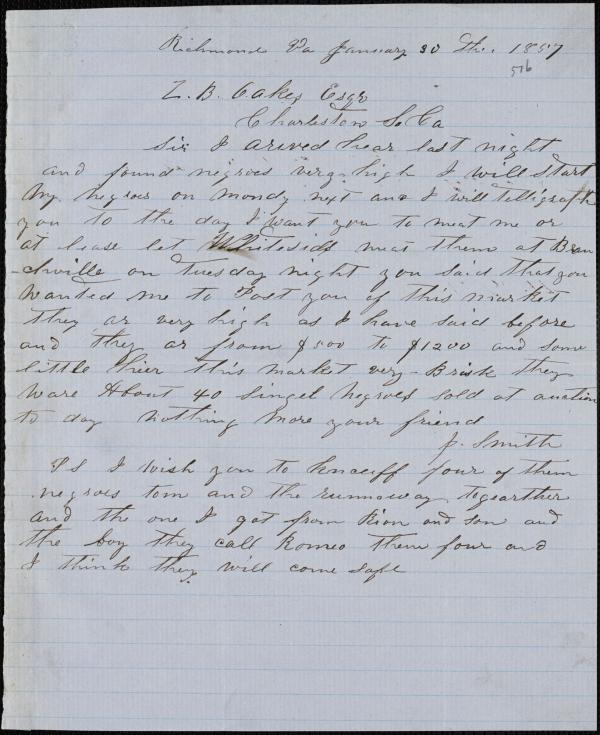 Richmond Va January 30 th. 1857
516
Z. B. Oakes Esqr
Charleston So Ca
Sir I arived hear last night
and found negroes very high I will start
my negroes on mondy next and I will telligraph
you to the day I want you to meat me or
at lease let Whiteside meat them at Bran
-chville on Tuesday night you said that you
wanted me to Post you of this market
they ar very high as I have said before
and they ar from $500 to $1200 and some
little hier this market very Brisk they
ware About 40 singel negroes sold at auction
to day nothing more your friend
J. Smith
PS I wish you to hencuff four of them
negroes tom and the runnaway togearther
and the one I got from Rion and son and
the boy they call Romeo them four and
I think they will come safe